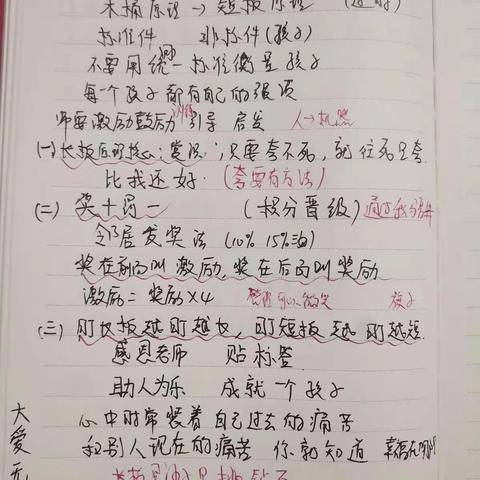 木桶原理→短板原理
标准件 非标件(孩子)
不要用统一标准衡量孩子
每一个孩子都有自己的强项
师要激励鼓励 引导 启发 人→机器
(一)长板原理核心:赏法:只要夸不死,就往死里夸
比我还好·(夸要有方法)
(二)奖十罚一 (积分晋级)通过积分晋升
邻居发奖法(10% 15%)
奖在前面叫激励,奖在后面叫奖励
激励=奖励×4 孩子
(三)盯长板越盯越长,盯短板越盯越短.
感恩老师 贴标签
助人为乐 成就一个孩子
心中时常装着自己过去的痛苦
和别人现在的痛苦 你就知道
大爱无